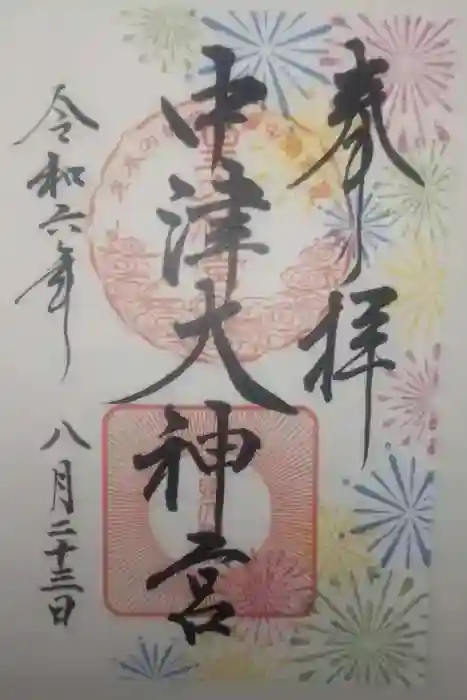 奉拝
中津大神宮
令和六年
八月二十三日